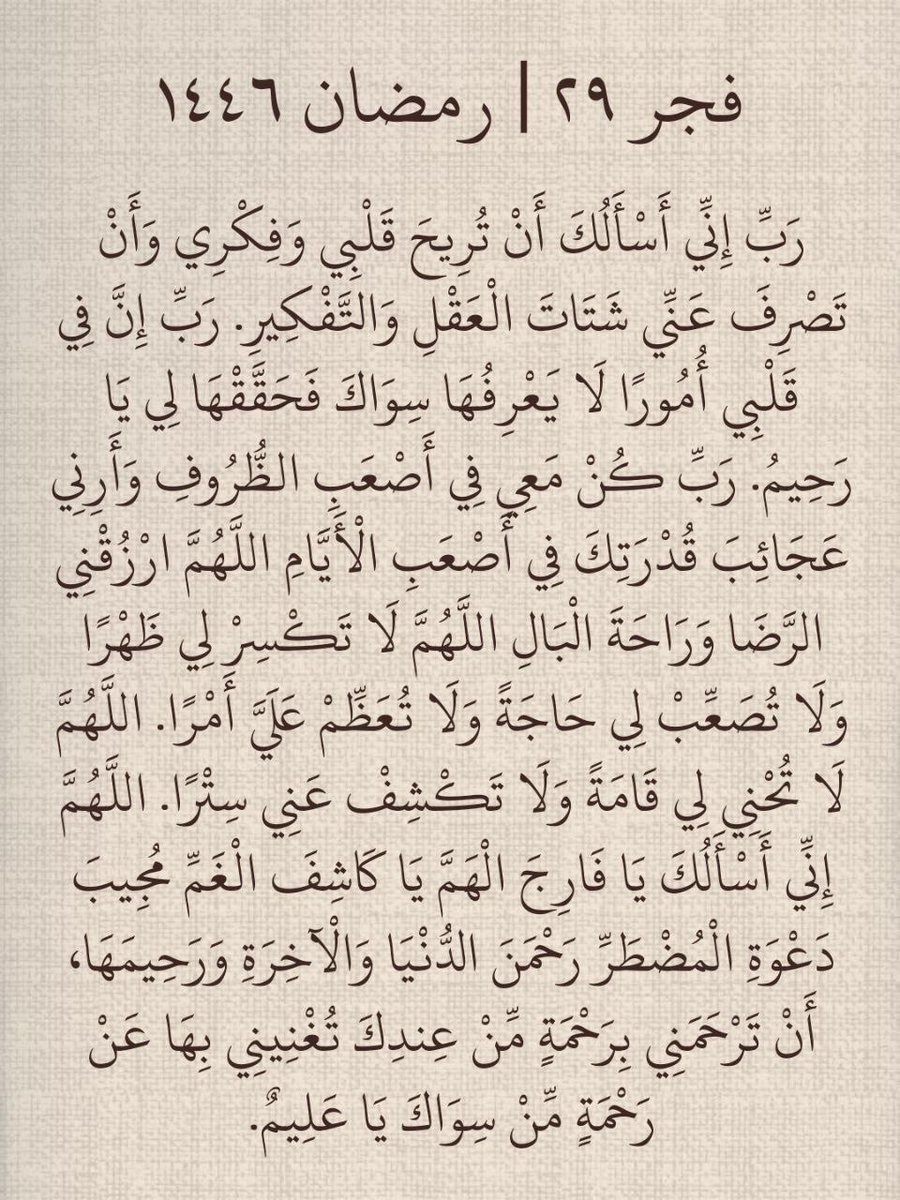 فجر ٢٩ | رمضان ١٤٤٦
رَبِّ إِنِّي أَسْأَلُكَ أَنْ تُرِيحَ قَلْبِي وَفِكْرِي وَأَنْ
تَصْرِفَ عَنِّي شَتَاتَ الْعَقْلِ وَالتَّفْكِيرِ. رَبِّ إِنَّ فِي
قَلْبِي أُمُورًا لَا يَعْرِفُهَا سِوَاكَ فَحَقَّقْهَا لِي يَا
رَحِيمُ. رَبِّ كُنْ مَعِي فِي أَصْعَبِ الظُّرُوفِ وَأَرِنِي
عَجَائِبَ قُدْرَتِكَ فِي أَصْعَبِ الْأَيَّامِ اللَّهُمَّ ارْزُقْنِي
الرَّضَا وَرَاحَةَ الْبَالِ اللَّهُمَّ لَا تَكْسِرْ لِي ظَهْرًا
وَلَا تُصَعِّبْ لِي حَاجَةً وَلَا تُعَظِّمْ عَلَيَّ أَمْرًا. اللَّهُمَّ
لَا تُحْنِي لِي قَامَةً وَلَا تَكْشِفْ عَنِي سِتْرًا. اللَّهُمَّ
إِنِّي أَسْأَلُكَ يَا فَارِجَ الْهَمَّ يَا كَاشِفَ الْغَمِّ مُجِيبَ
دَعْوَةِ الْمُضْطَرِّ رَحْمَنَ الدُّنْيَا وَالْآخِرَةِ وَرَحِيمَهَا،
أَنْ تَرْحَمَنِي بِرَحْمَةٍ مِّنْ عِندِكَ تُغْنِينِي بِهَا عَنْ
رَحْمَةٍ مِّنْ سِوَاكَ يَا عَلِيمٌ.